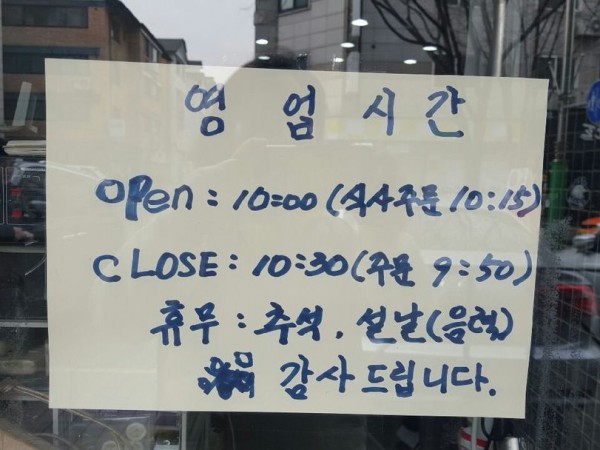 영 업 시 간
open : 10:00 (식사주문 10:15)
CLOSE : 10:30 (주문 9:50)
휴무 : 추석. 설날(음력)
감사드립니다.